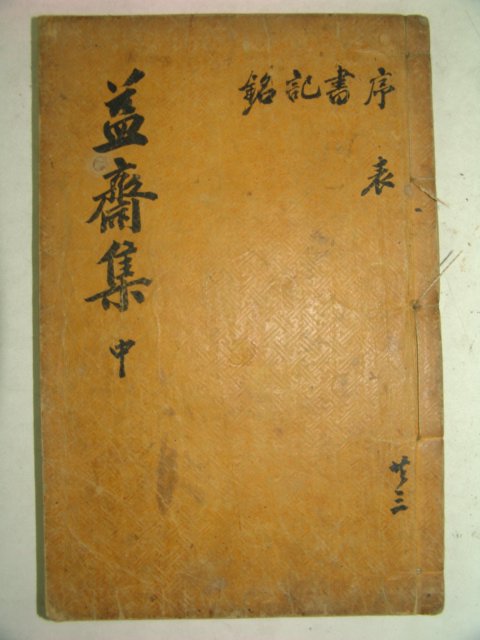 益齋集 中
序書記銘
表
共三